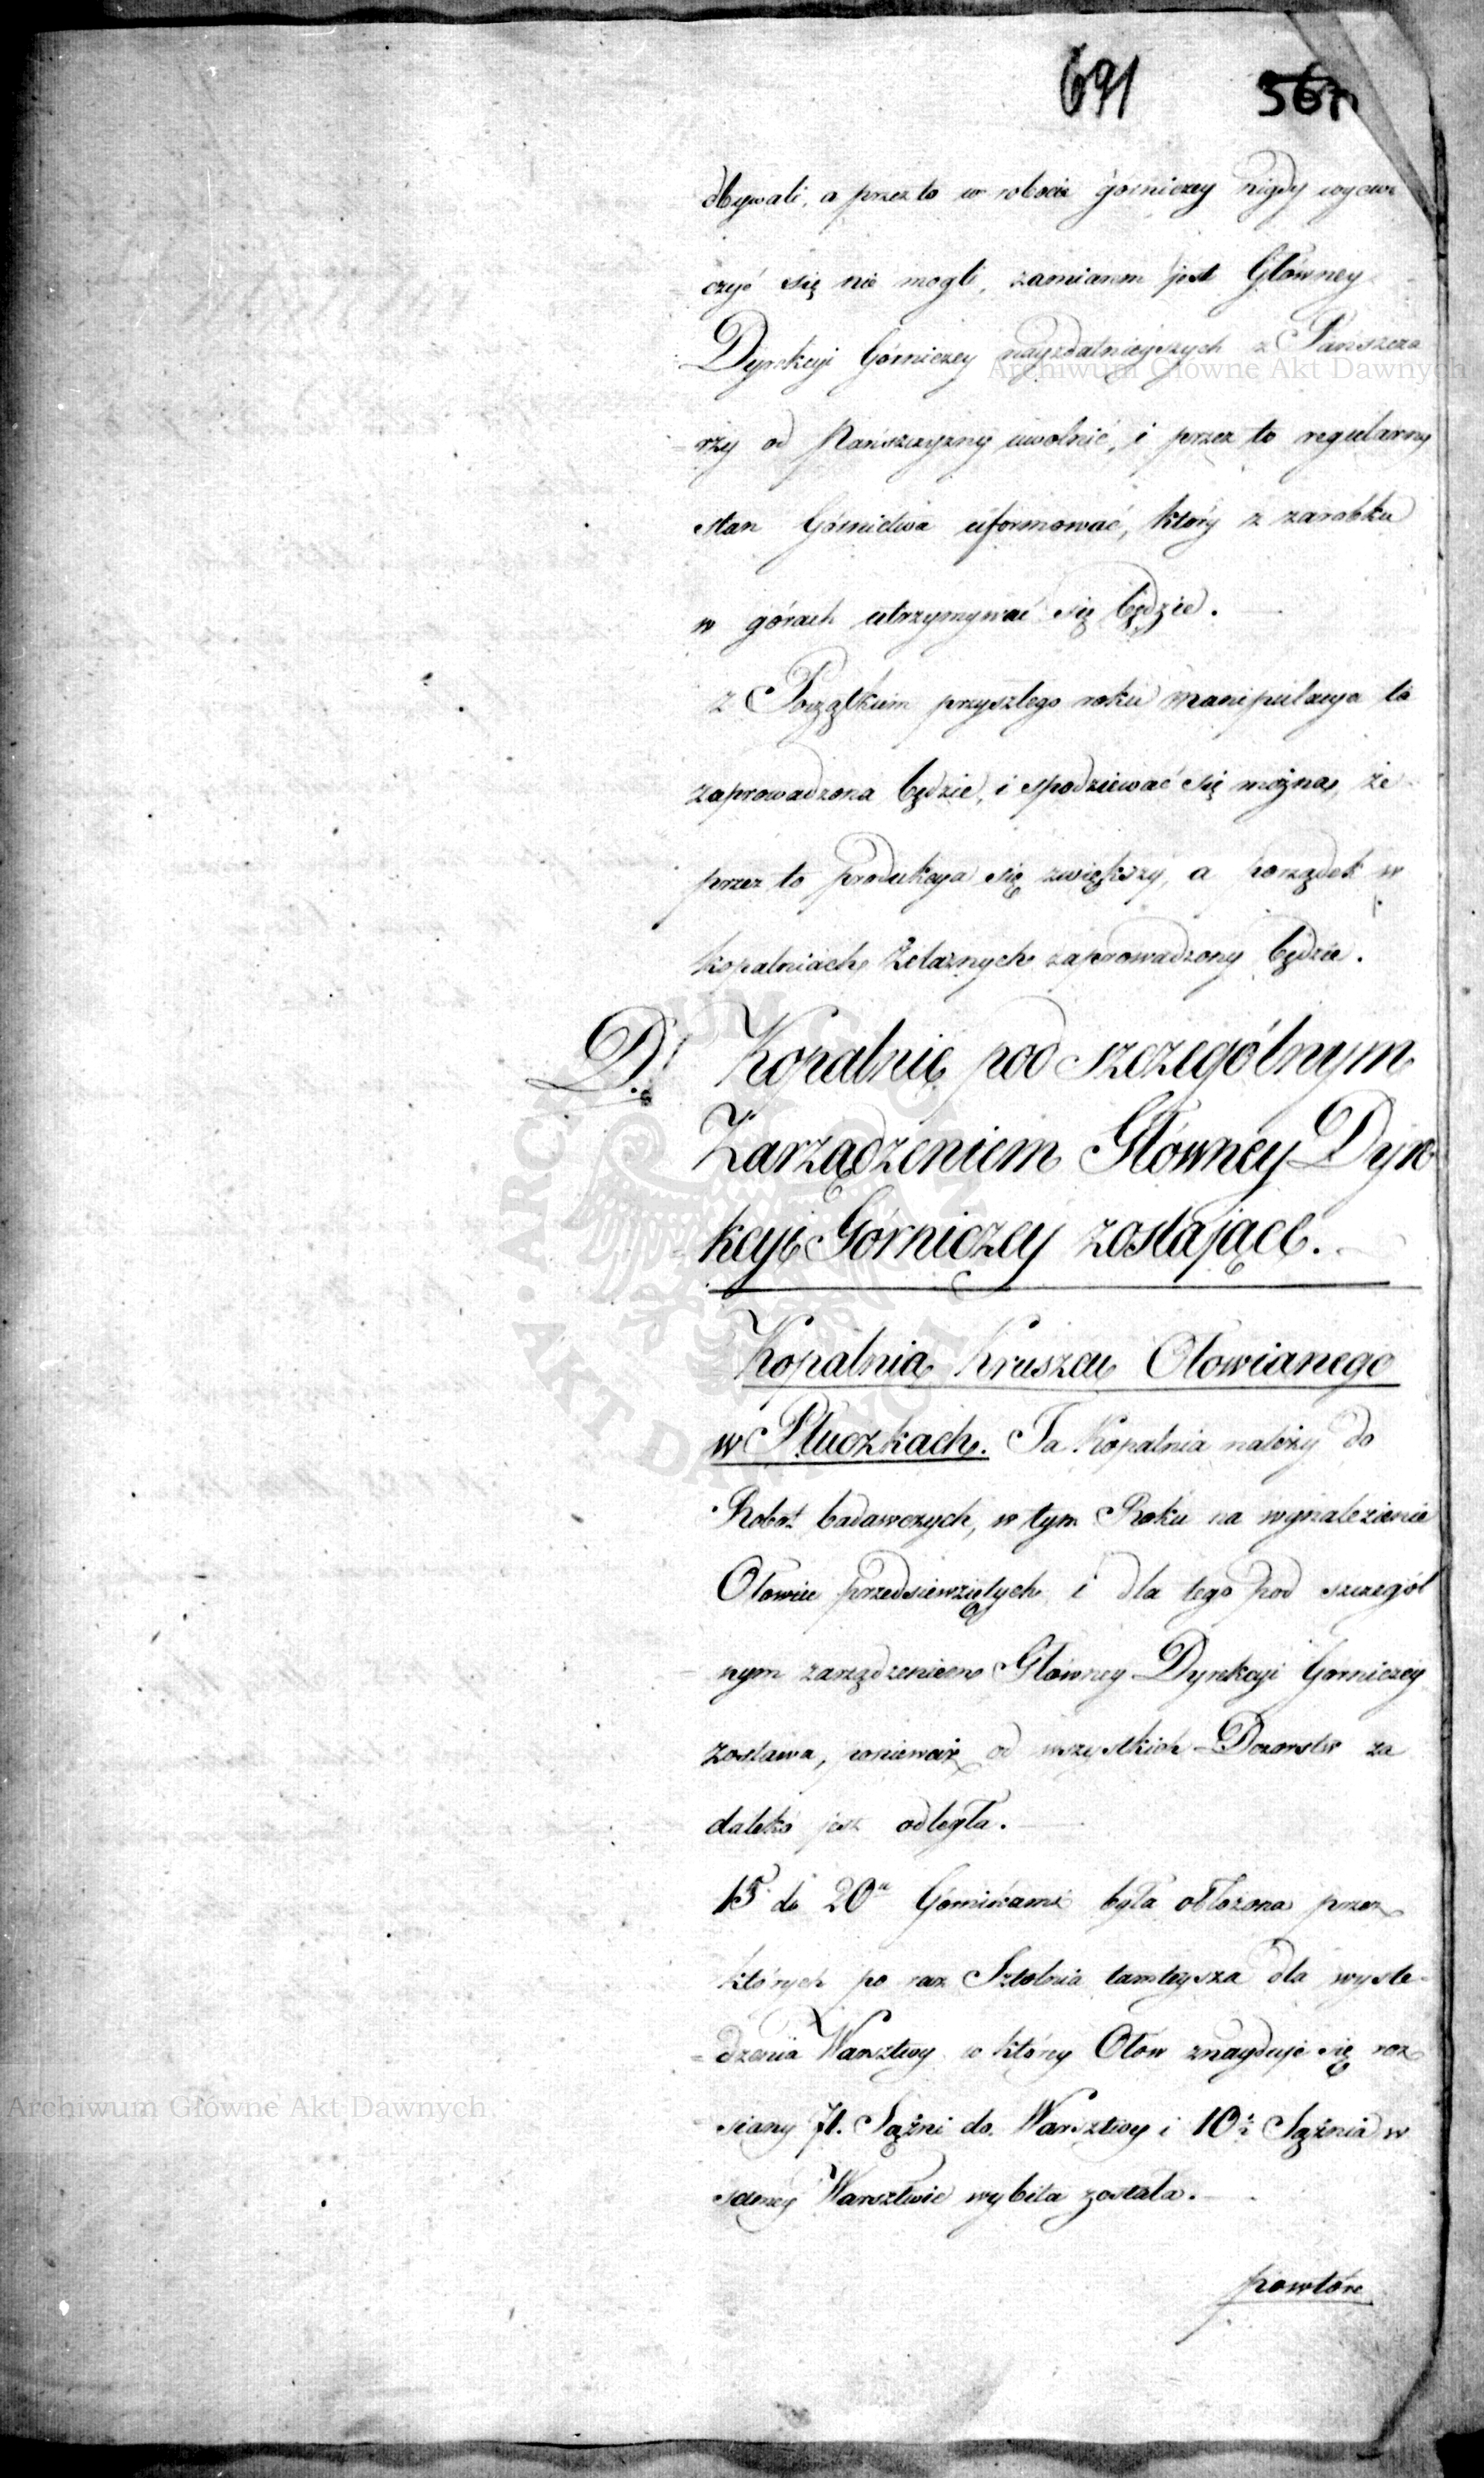 691 567
dbywali, a przez to w robocie górniczey nigdy wycwi
czyć się nie mogli, zamiarem jest Główney
Dyrekcyi Górniczey nayzdatnieyszych z Pańszcza
rzy od Pańszczyzny uwolnić, i przez to regularny
stan Górnictwa uformować, który z zarobku
w górach utrzymywać się będzie.
z Początkiem przyszłego roku manipulacya ta
zaprowadzona będzie, i spodziewać się można, że
przez to produkcya się zwiększy, a porządek w
kopalniach Żelaznych zaprowadzony będzie.
D. Kopalnie pod szczególnym
Zarządzeniem Główney Dyre
kcyi Górniczey zostające.
Kopalnia Kruszcu Ołowianego
w Płuczkach. Ta Kopalnia należy do
Robót badawczych, w tym Roku na wynalezienie
Ołowiu przedsiewziętych i dla tego pod szczegól
nym zarządzeniem Główney Dyrekcyi Górniczey
zostawa, ponieważ od wszystkich Dozorstw za
daleko jest odległa.
15 do 20 Górnikami była obłożona przez
których po raz Sztolnia tamteysza dla wyśle-
dzenia Warsztwy w którey Ołów znayduje się roz
siany 71. Sążni do Warsztwy i 10½ Sążnia w
samey Warsztwie wybita została.
powtóre
Archiwum Główne Akt Dawnych
Archiwum Główne Akt Dawnych
ARCHIWUM GŁÓWNE AKT DAWNYCH